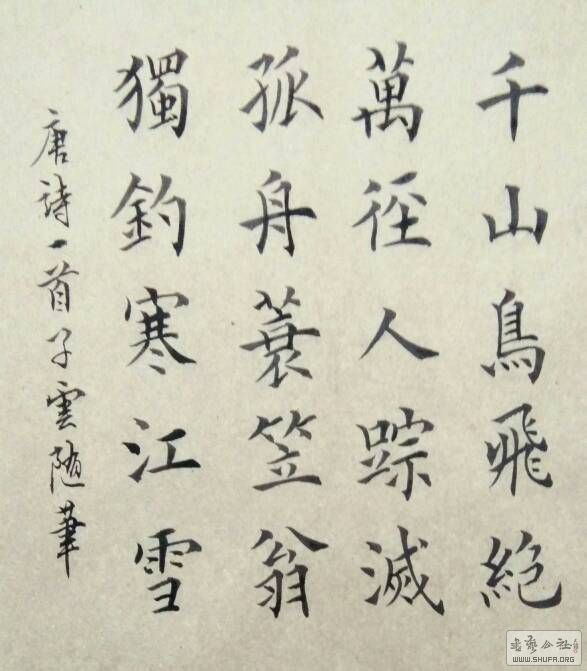 千山鳥飛絕
萬徑人踪滅
孤舟蓑笠翁
獨釣寒江雪
唐詩一首子雲随筆
WWW.SHUFA.ORG